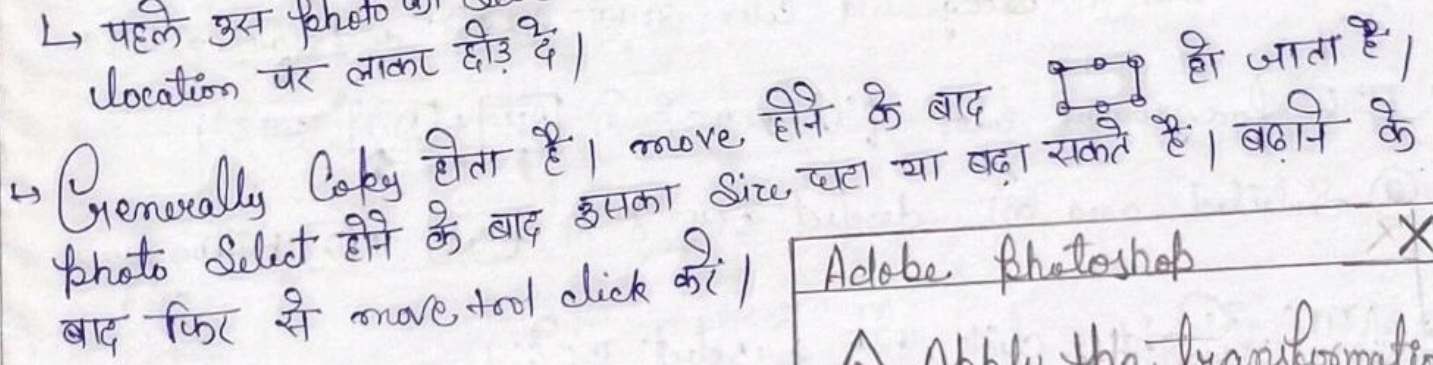 ↳ पहले उस photo को
location पर लाकर छोड़ दे।
↳ Generally Copy होता है। move होने के बाद हो जाता है।
photo Select होने के बाद इसका Size घटा या बढ़ा सकते है। बढ़ाने के
बाद फिर से move tool click करें।
Adobe Photoshop X
Apply the transformation